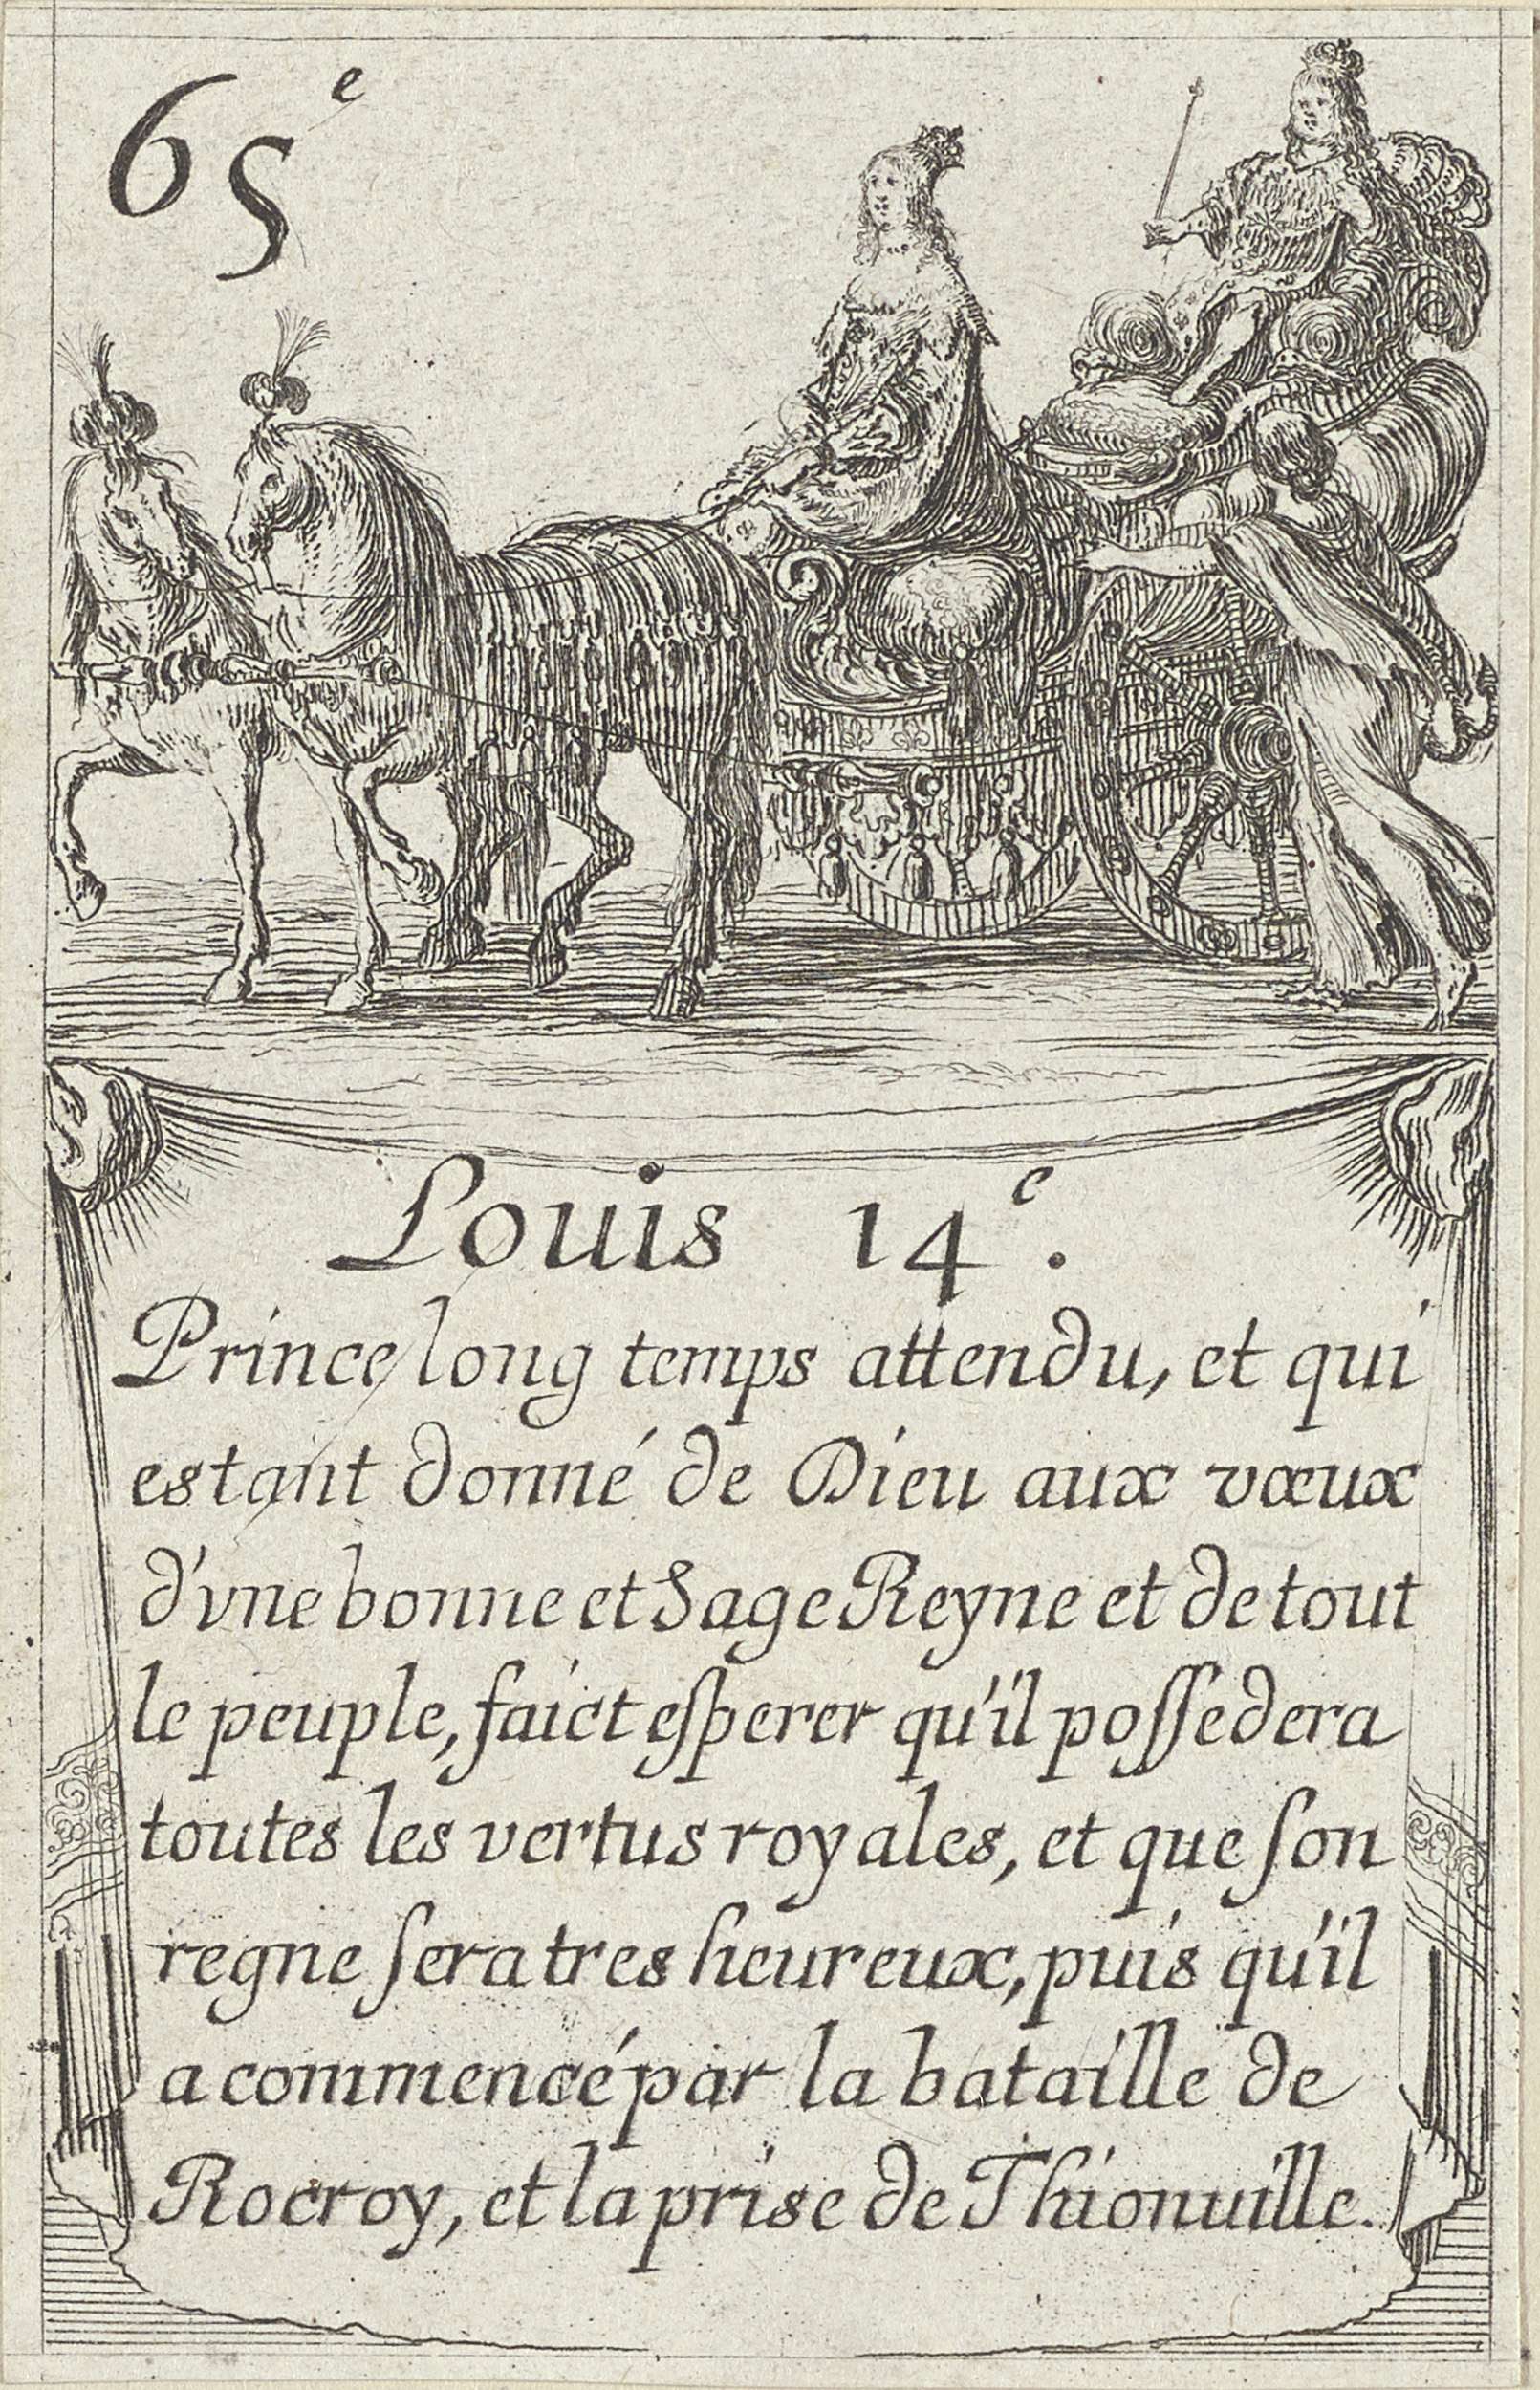 65e
Louis 14e.
Prince long temps attendu, et qui
estant donné de Dieu aux vœux
d'vne bonne et Sage Reyne et de tout
le peuple, faict eſperer qu'il poſſedera
toutes les vertus royales, et que ſon
regne ſera tres heureux, puis qu'il
a commencé par la bataille de
Rocroy, et la prise de Thionuille.